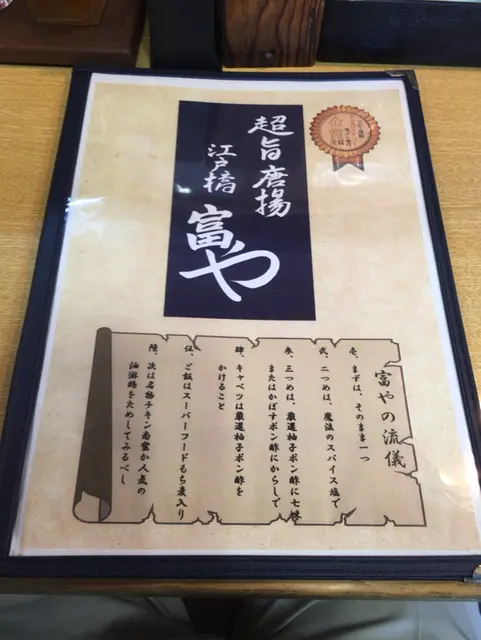 超旨唐揚
江戸橋
富や
金賞
富やの流儀
壱、まずは、そのまま一つ
弐、二つめは、魔法のスパイス塩で
参、三つめは、厳選柚子ポン酢に七味
またはかぼすポン酢にからしで
肆、キャベツは厳選柚子ポン酢を
かけること
伍、ご飯はスーパーフードもち麦入り
陸、次は名物チキン南蛮か人気の
油淋鶏をためしてみるべし